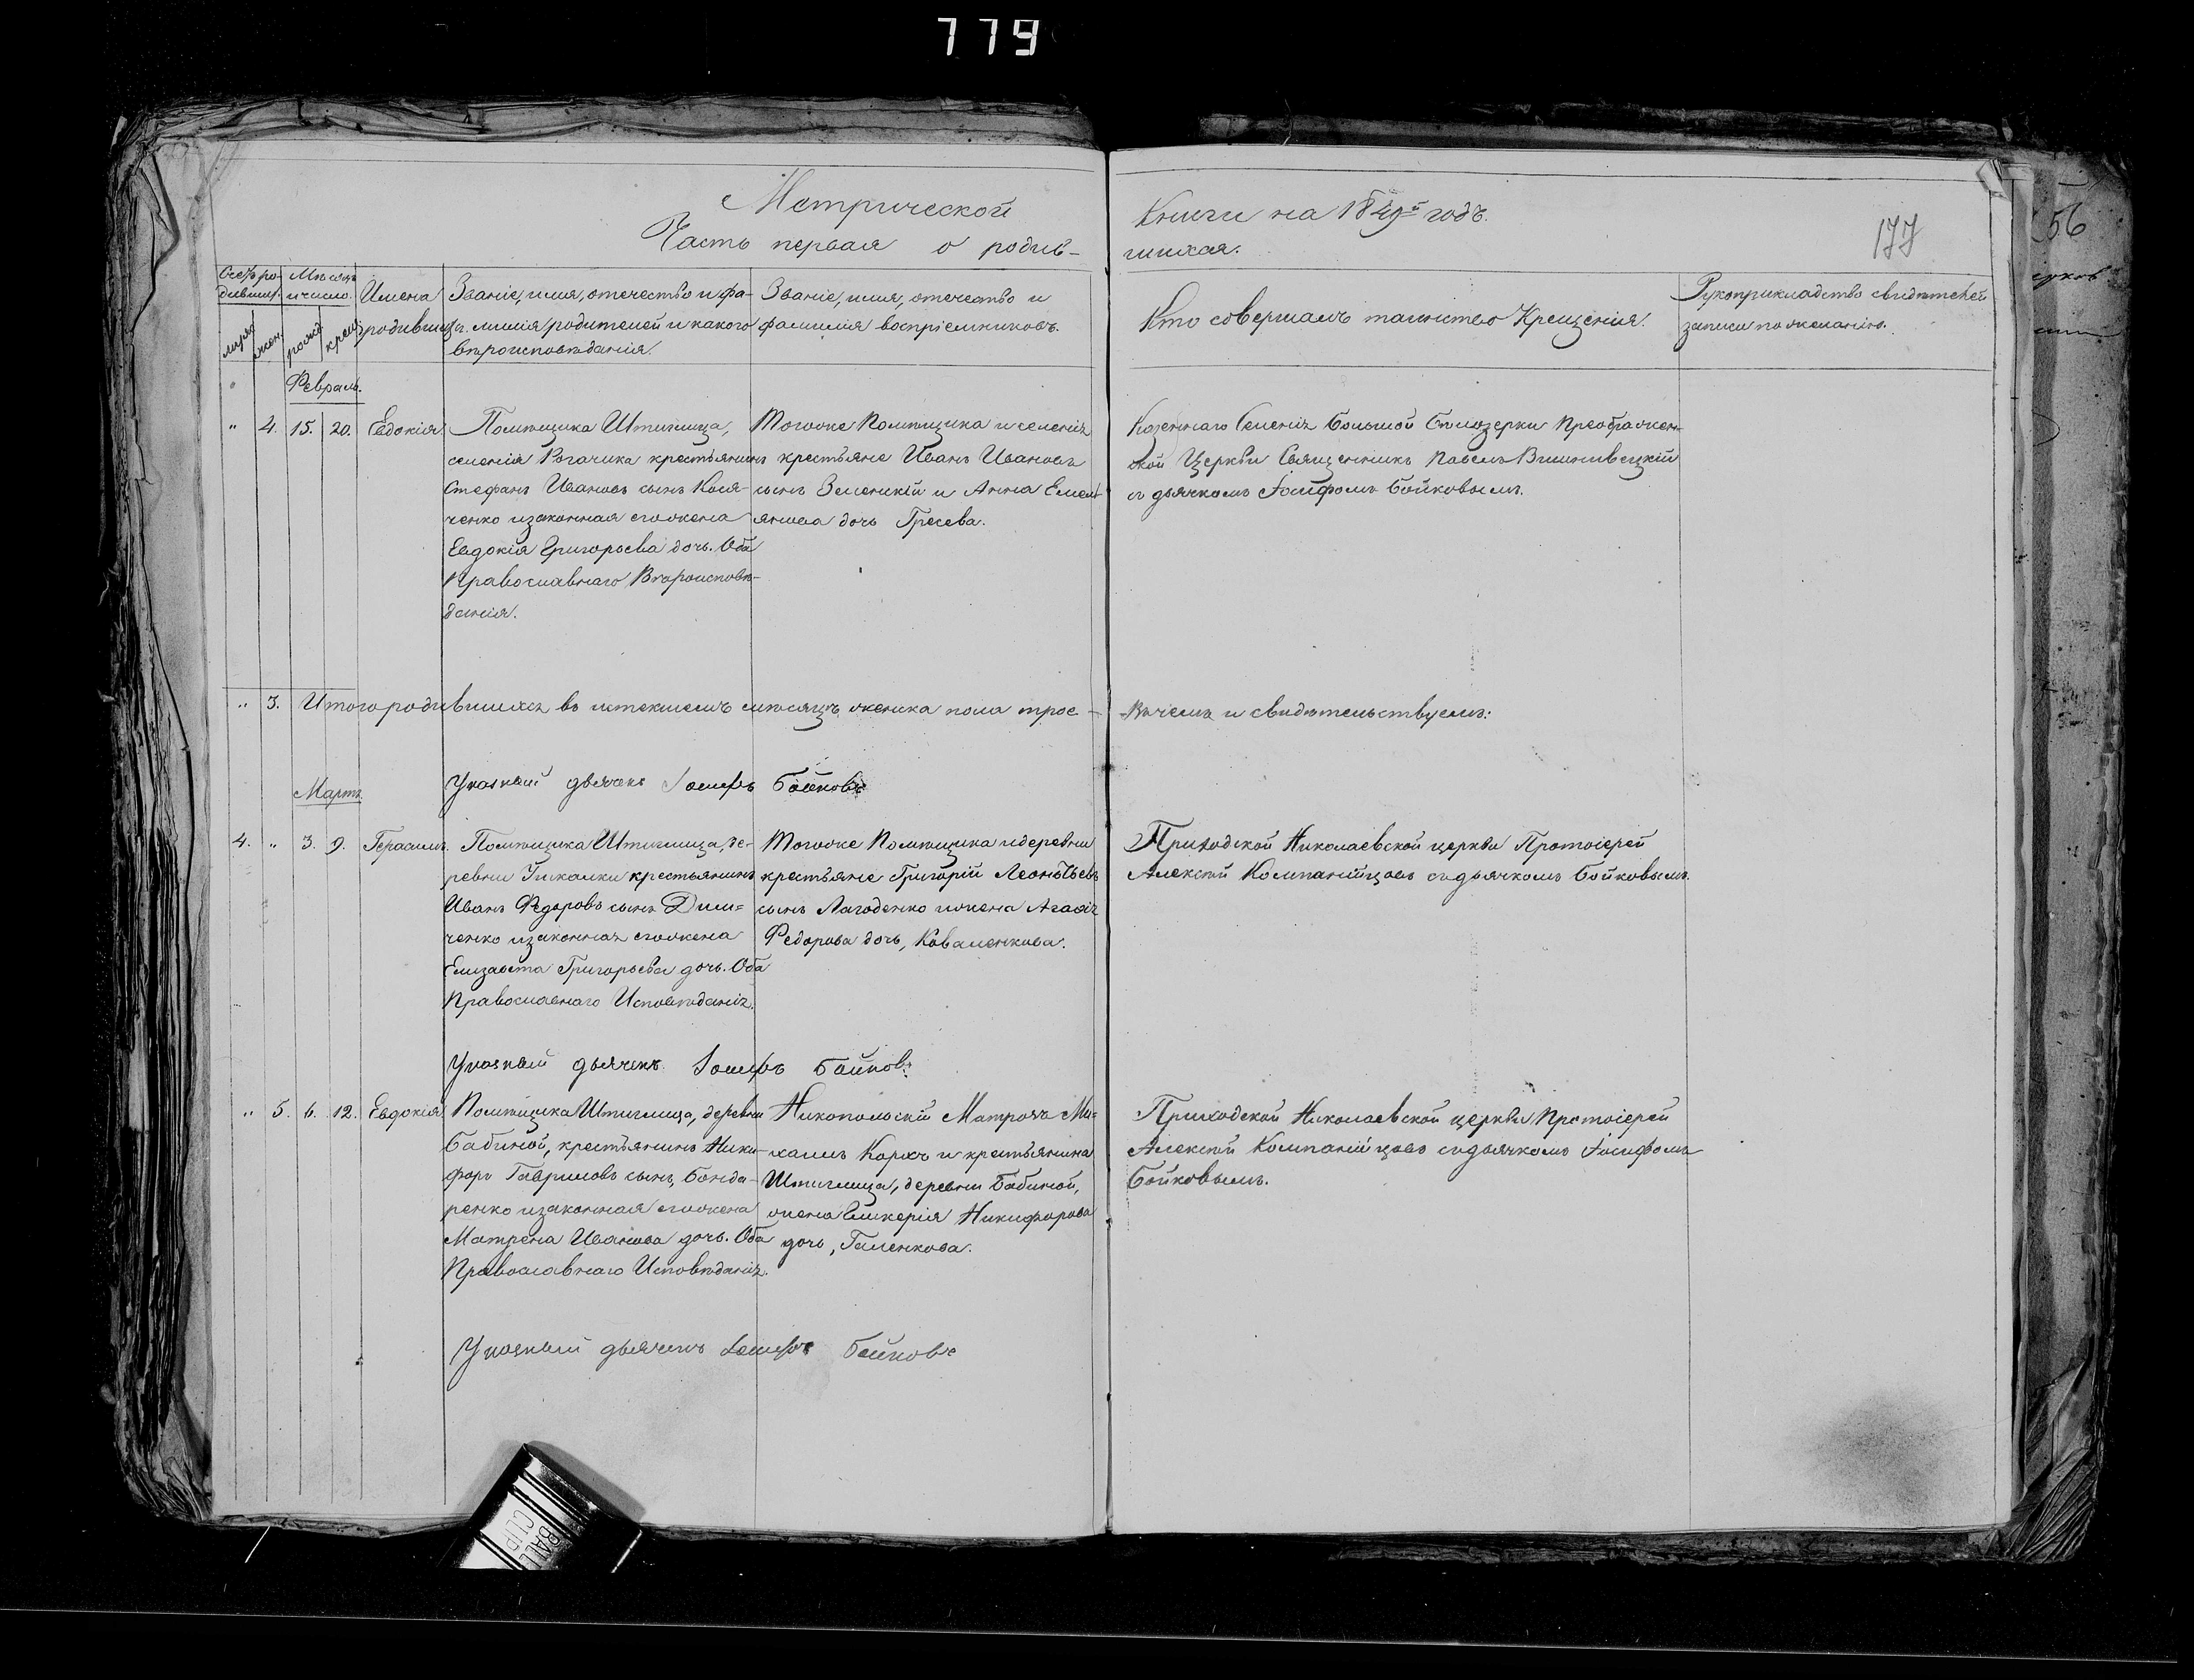 779
Метрической
Часть первая о родив-
Книги на 1849й годъ.
шихся.
177
56
Счетъ ро-
дивших.
мужс
женс
Мѣсяцъ
и число.
рожд
крещ
Имена
родивших
Званіе, имя, отечество и фа-
милія родителей и какого
вѣроисповѣданія.
Званіе, имя, отечество и
фамилія воспріемниковъ.
Кто совершалъ таинство Крещенія.
Рукоприкладство свидѣтелей
записи по желанію.
Февраль.
" 4. 15. 20. Евдокія
Помѣщика Штиглица,
селенія Рогачика крестьянинъ
Стефанъ Ивановъ сынъ Коля-
ченко и законная его жена
Евдокія Григорьева дочь. Оба
Православнаго Вѣроисповѣ-
данія.
Тогоже Помѣщика и селенія
крестьяне Иванъ Ивановъ
сынъ Зеленскій и Анна Емель-
янова дочь Гресева.
Казеннаго Селенія Большой Бѣлозерки Преображен-
ской Церкви Священникъ Павелъ Вишнивецкій
съ дьячкомъ Іосифомъ Бойковымъ.
" 3. Итого родившихся въ истекшемъ мѣсяцѣ женска пола трое -
Въ чемъ и свидѣтельствуемъ:
Указный дьячекъ Іосифъ Бойковъ
Мартъ
4. " 3. 9. Герасимъ.
Помѣщика Штиглица, де-
ревни Ушкалки крестьянинъ
Иванъ Ѳедоровъ сынъ Дим=
ченко и законная его жена
Елизавета Григорьева дочь. Оба
Православнаго Исповѣданія.
Тогоже Помѣщика и деревни
крестьяне Григорій Леонтьевъ
сынъ Лагоденко и жена Агаѳія
Федорова дочь, Коваленкова.
Приходской Николаевской церкви Протоіерей
Алексій Компанійцовъ съ дьячкомъ Бойковымъ.
Указный дьячекъ Іосифъ Бойковъ
" 5. 6. 12. Евдокія
Помѣщика Штиглица, деревни
Бабиной, крестьянинъ Ники-
форъ Гавриловъ сынъ, Бонда-
ренко и законная его жена
Матрена Иванова дочь. Оба
Православнаго Исповѣданія.
Никопольскій Матрозъ Ми=
хаилъ Коржъ и крестьянина
Штиглица, деревни Бабиной,
жена Гликерія Никифорова
дочь, Галенкова.
Приходской Николаевской церкви Протоіерей
Алексій Компанійцовъ съ дьячкомъ Іосифомъ
Бойковымъ.
Указный дьячекъ Іосифъ Бойковъ